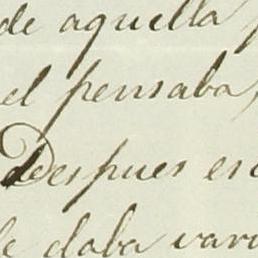 de aquella
el pensaba,
Despues es
le daba vari